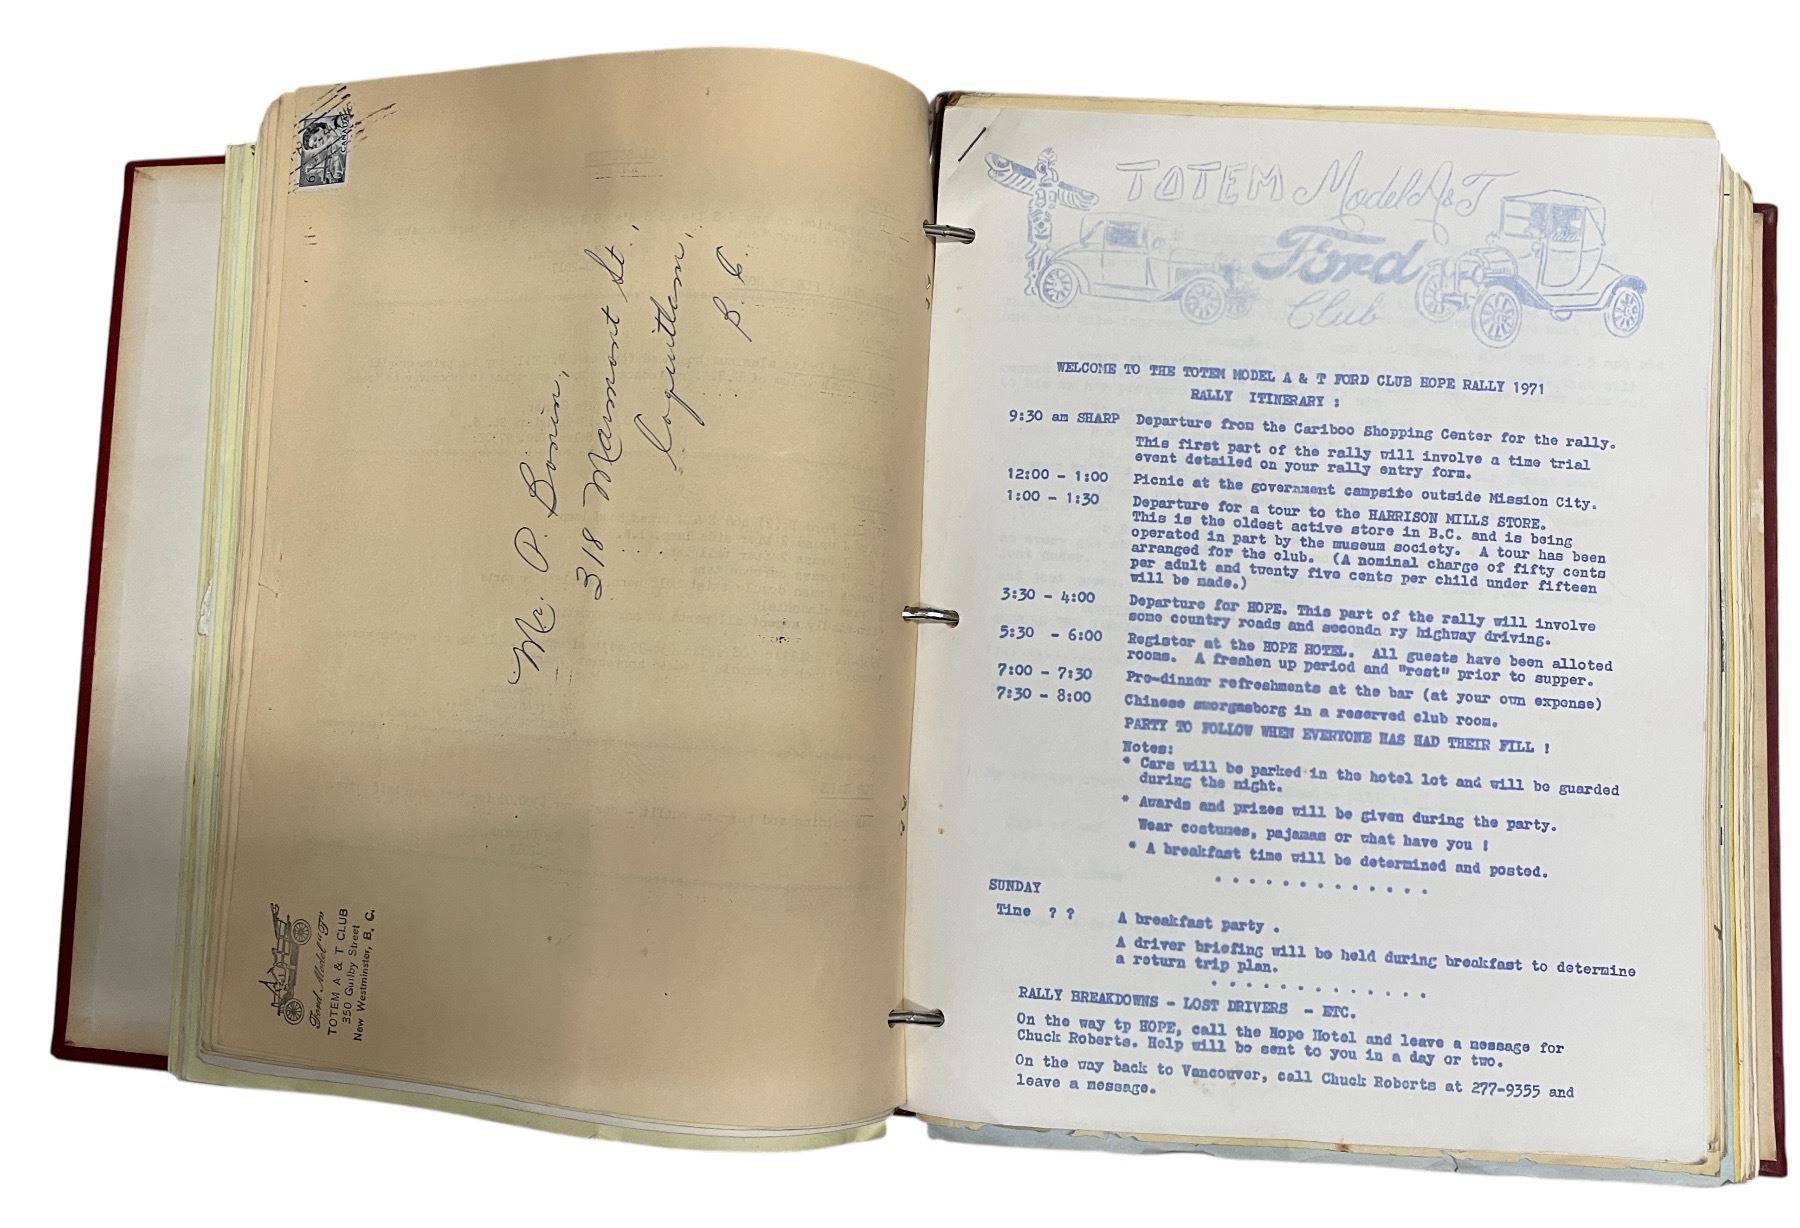 6
CANADA
Mr. P. Bonin,
318 Marmont St.,
Coquitlam,
B.C.
Ford Model "T"
TOTEM A & T CLUB
350 Guilby Street
New Westminster, B. C.
TOTEM Model A & T
Ford
Club
WELCOME TO THE TOTEM MODEL A & T FORD CLUB HOPE RALLY 1971
RALLY ITINERARY :
9:30 am SHARP Departure from the Cariboo Shopping Center for the rally.
This first part of the rally will involve a time trial
event detailed on your rally entry form.
12:00 - 1:00 Picnic at the government campsite outside Mission City.
1:00 - 1:30 Departure for a tour to the HARRISON MILLS STORE.
This is the oldest active store in B.C. and is being
operated in part by the museum society. A tour has been
arranged for the club. (A nominal charge of fifty cents
per adult and twenty five cents per child under fifteen
will be made.)
3:30 - 4:00 Departure for HOPE. This part of the rally will involve
some country roads and seconda ry highway driving.
5:30 - 6:00 Register at the HOPE HOTEL. All guests have been alloted
rooms. A freshen up period and "rest" prior to supper.
7:00 - 7:30 Pre-dinner refreshments at the bar (at your own expense)
7:30 - 8:00 Chinese smorgasborg in a reserved club room.
PARTY TO FOLLOW WHEN EVERYONE HAS HAD THEIR FILL !
Notes:
* Cars will be parked in the hotel lot and will be guarded
during the night.
* Awards and prizes will be given during the party.
Wear costumes, pajamas or what have you !
* A breakfast time will be determined and posted.
. . . . . . . . . . . . .
SUNDAY
Time ? ? A breakfast party .
A driver briefing will be held during breakfast to determine
a return trip plan.
. . . . . . . . . . . . .
RALLY BREAKDOWNS - LOST DRIVERS - ETC.
On the way tp HOPE, call the Hope Hotel and leave a message for
Chuck Roberts. Help will be sent to you in a day or two.
On the way back to Vancouver, call Chuck Roberts at 277-9355 and
leave a message.